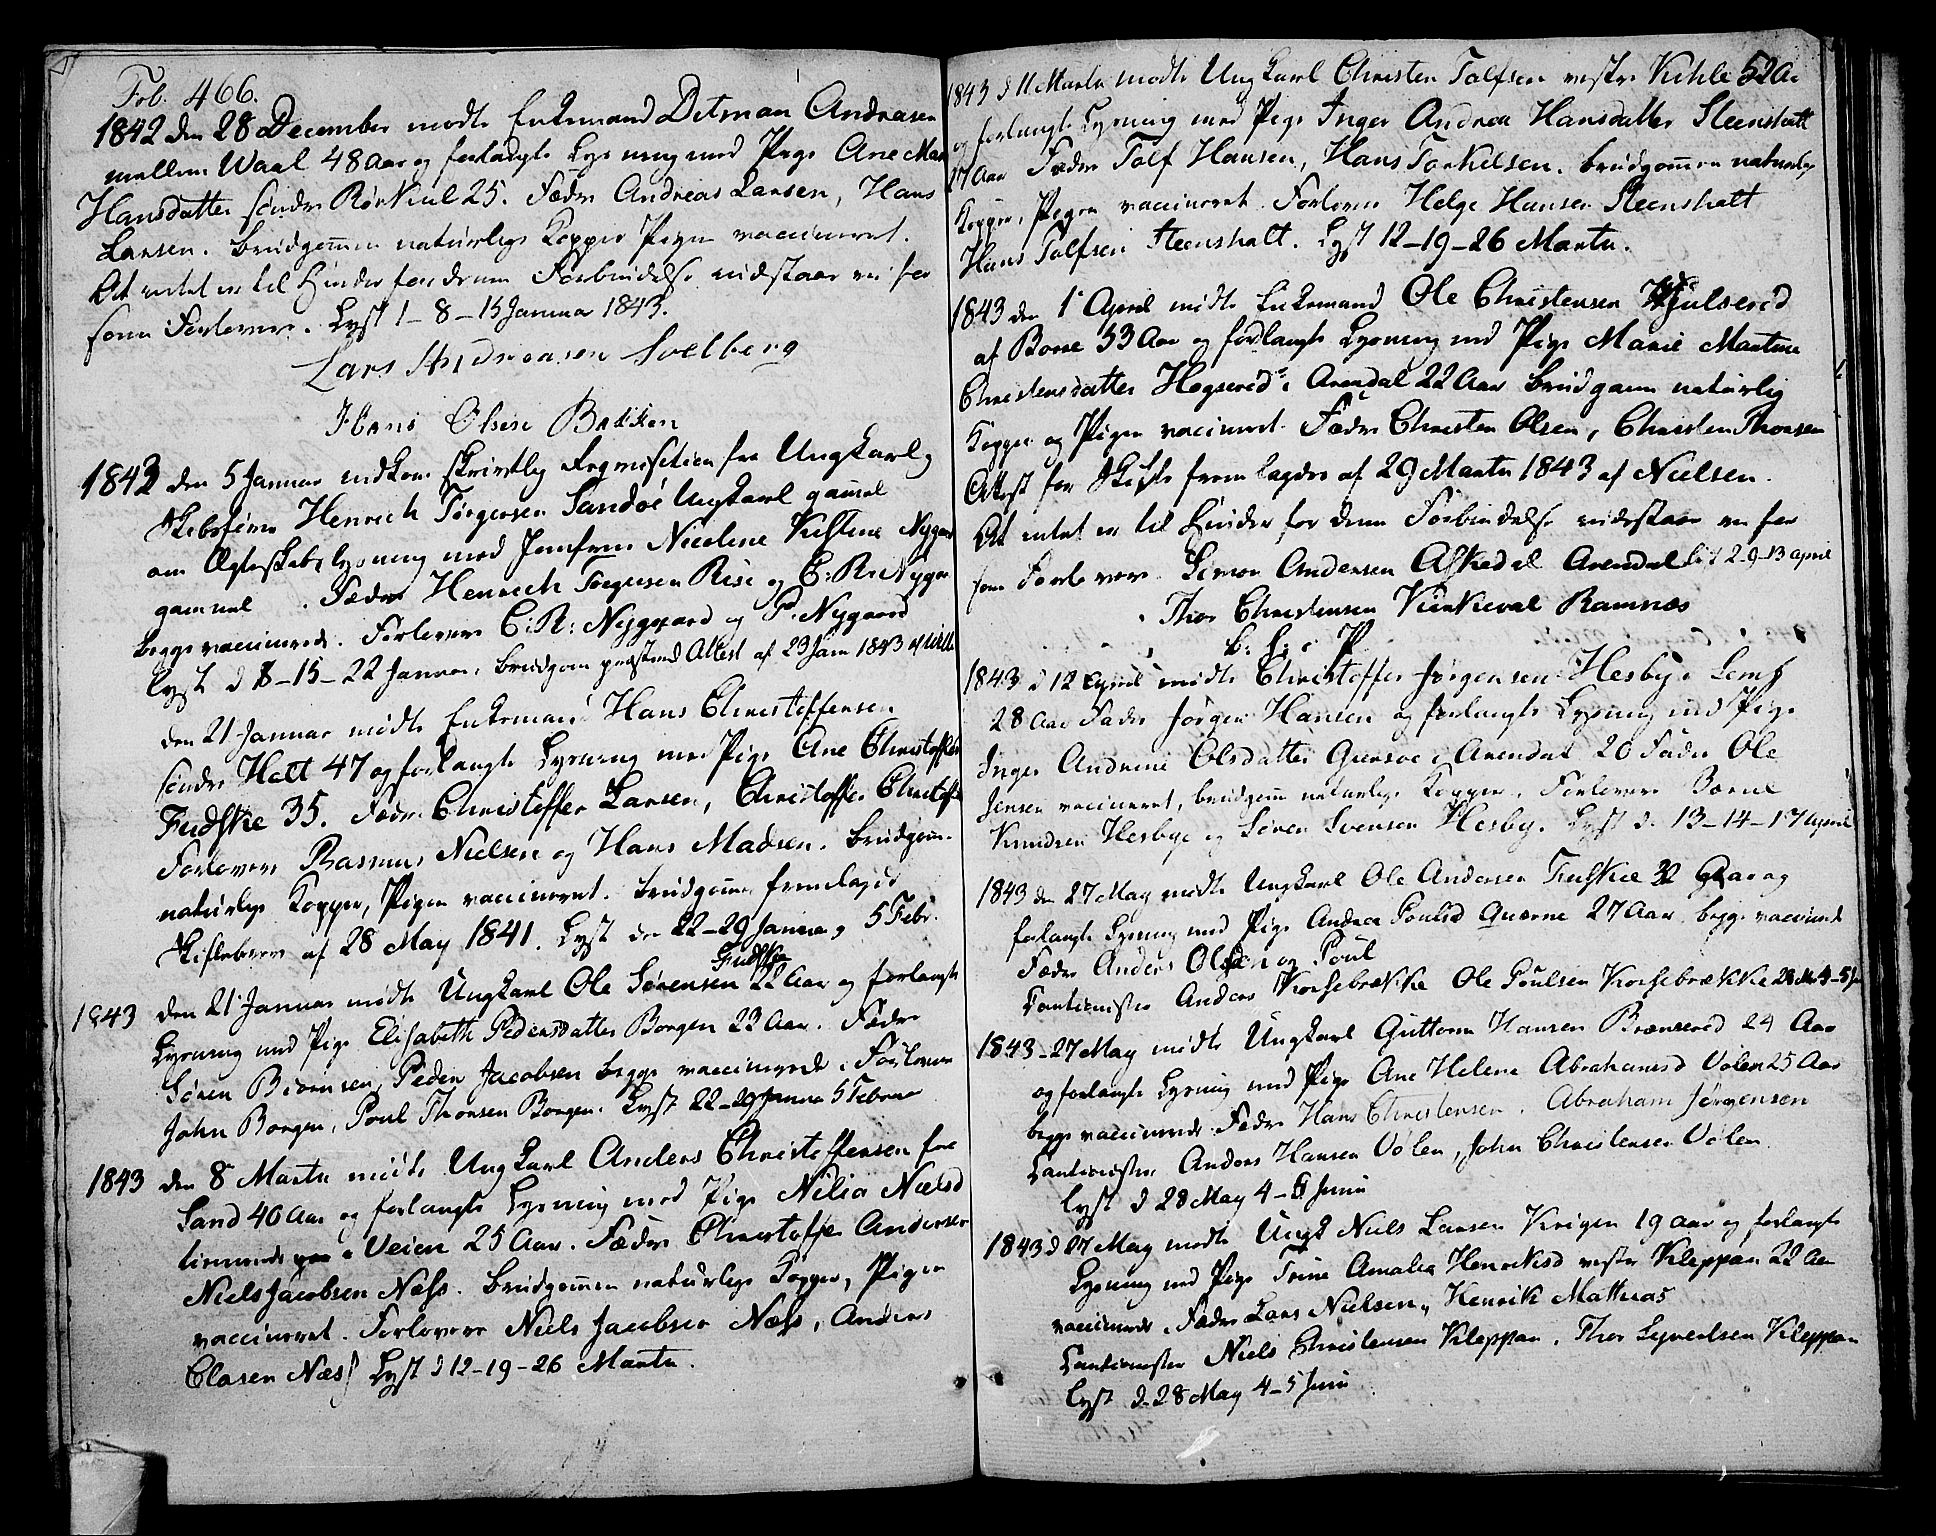 Fol. 466.
1842 den 28 December mødte Enkemand Ditman Andreasen
mellem Waal 48 Aar og forlangte Lysning med Pige Ane Mar
Hansdatter søndre Rørkiul 25. Fædre Andreas Larsen, Hans
Larsen. Brudgommen naturlige Kopper Pigen vaccineret.
At intet er til Hinder for denne Forbindelse indstaar vi for
som Forlovere. Lyst 1-8-15 Januar 1843.
Lars Andreasen Solberg
Hans Olsen Bakken
1843 den 5 Januar indkom skriftlig Reqvisition fra Ungkarl
Skibsfører Henrich Törgersen Sandöe Ungkarl gammel
om Ægteskabslysning med Jomfrue Nicoline Kistine Nygaard
gammel . Fædre Henrich Törgersen Rise og C: R: Nygaa
begge vaccinerede. Forlovere C: R: Nyggaard og P. Nygaard
lyst d 8-15-22 Januar. Brudgom Attest af 23 Jan 1843 af
den 21 Januar mødte Enkemand Hans Christoffersen
søndre Hatt 47 og forlangte Lysning med Pige Ane Christoffers
Fudske 35. Fædre Christoffer Larsen, Christoffer Christoff
Forlovere Rasmus Nielsen og Hans Madsen. Brudgom
naturlige Kopper, Pigen vaccineret. Brudgommen fremlagde
Skiftebrev af 28 May 1841. Lyst den 22-29 Januar, 5 Febr.
Fudske
1843 den 21 Januar mødte Ungkarl Ole Sørensen 22 Aar og forlangte
Lysning med Pige Elisabeth Pedersdatter Borgen 23 Aar. Fædre
Søren Biørnsen, Peder Jacobsen begge vaccinerede. Forlovere
John Borgen, Poul Thorsen Borgen. Lyst 22-29 Januar 5 Februar
1843 den 8 Marts mødte Ungkarl Anders Christoffersen fra
Sand 40 Aar og forlangte Lysning med Pige Nilia Nielsd
tienende paa Veien 25 Aar. Fædre Christoffer Andersen
Niels Jacobsen Næss. Brudgommen naturlige Kopper, Pigen
vaccineret. Forlovere Niels Jacobsen Næss, Anders
Clasen Næss Lyst d 12-19-26 Marts.
1843 d 11 Marts mødte Ungkarl Christen Tolfsen vestre Kihle 52 A.
og forlangte Lysning med Pige Inger Andrea Hansdatter Steenshatt
27 Aar Fædre Tolf Hansen, Hans Torkelsen. Brudgommen naturlige
Kopper, Pigen vaccineret. Forlovere Helge Hansen Steenshatt
Hans Tolfsen Steenshatt. Lyst 12-19-26 Marts.
1843 den 1 April mødte Enkemand Ole Christensen Hjulserød
af Borre 53 Aar og forlangte Lysning med Pige Marie Martine
Christensdatter Hogserød i Arendal 22 Aar Brudgom naturlig
Kopper og Pigen vaccineret. Fædre Christen Olsen, Christen Thorsen
Attest for Skifte fremlagdes af 29 Marts 1843 af Nielsen.
At intet er til Hinder for denne Forbindelse indestaar vi for
som Forlovere Simon Andersen Askedal Arendal lyst 2-9-13 April
Thor Christensen Kirkeval Ramnæs
1843 d 12 April mødte Christoffer Jørgensen Hesby i Sem
28 Aar Fader Jørgen Hansen og forlangte Lysning med Pige
Inger Andrine Olsdatter Giersøe i Arendal 20 Fader Ole
Jensen vaccineret, brudgom naturlige Kopper. Forlovere
Knudsen Hesbye og Søren Svensen Hesby. Lyst d. 13-14-17 April
1843 den 27 May mødte Ungkarl Ole Andersen Fuskie 32 Aar og
forlangte Lysning med Pige Andrea Poulsd Qværne 27 Aar begge vaccinerede
Fædre Anders Olsen og Poul
Cautionister Anders Korsebrække Ole Poulsen Korsebrække 28 M 4-5 Ju
1843-27 May mødte Ungkarl Guttorm Hansen Brænserød 24 Aar
og forlangte Lysning med Pige Ane Helene Abrahamsd Vølen 25 Aar
begge vaccinerede Fædre Hans Christensen. Abraham Jørgensen
Cautionister Anders Hansen Vølen, John Christensen Vølen
Lyst d 28 May 4-5 Juni
1843 d 27 May mødte Ungk Niels Larsen Krigen 19 Aar og forlangte
Lysning med Pige Trine Amalia Henriksd vestre Kleppan 22 Aar
vaccinerede. Fædre Lars Nielsen, Henrik Mathias
Cautionister Niels Christensen Kleppan. Thor Syvertsen Kleppan
Lyst d. 28 May 4-5 Juni